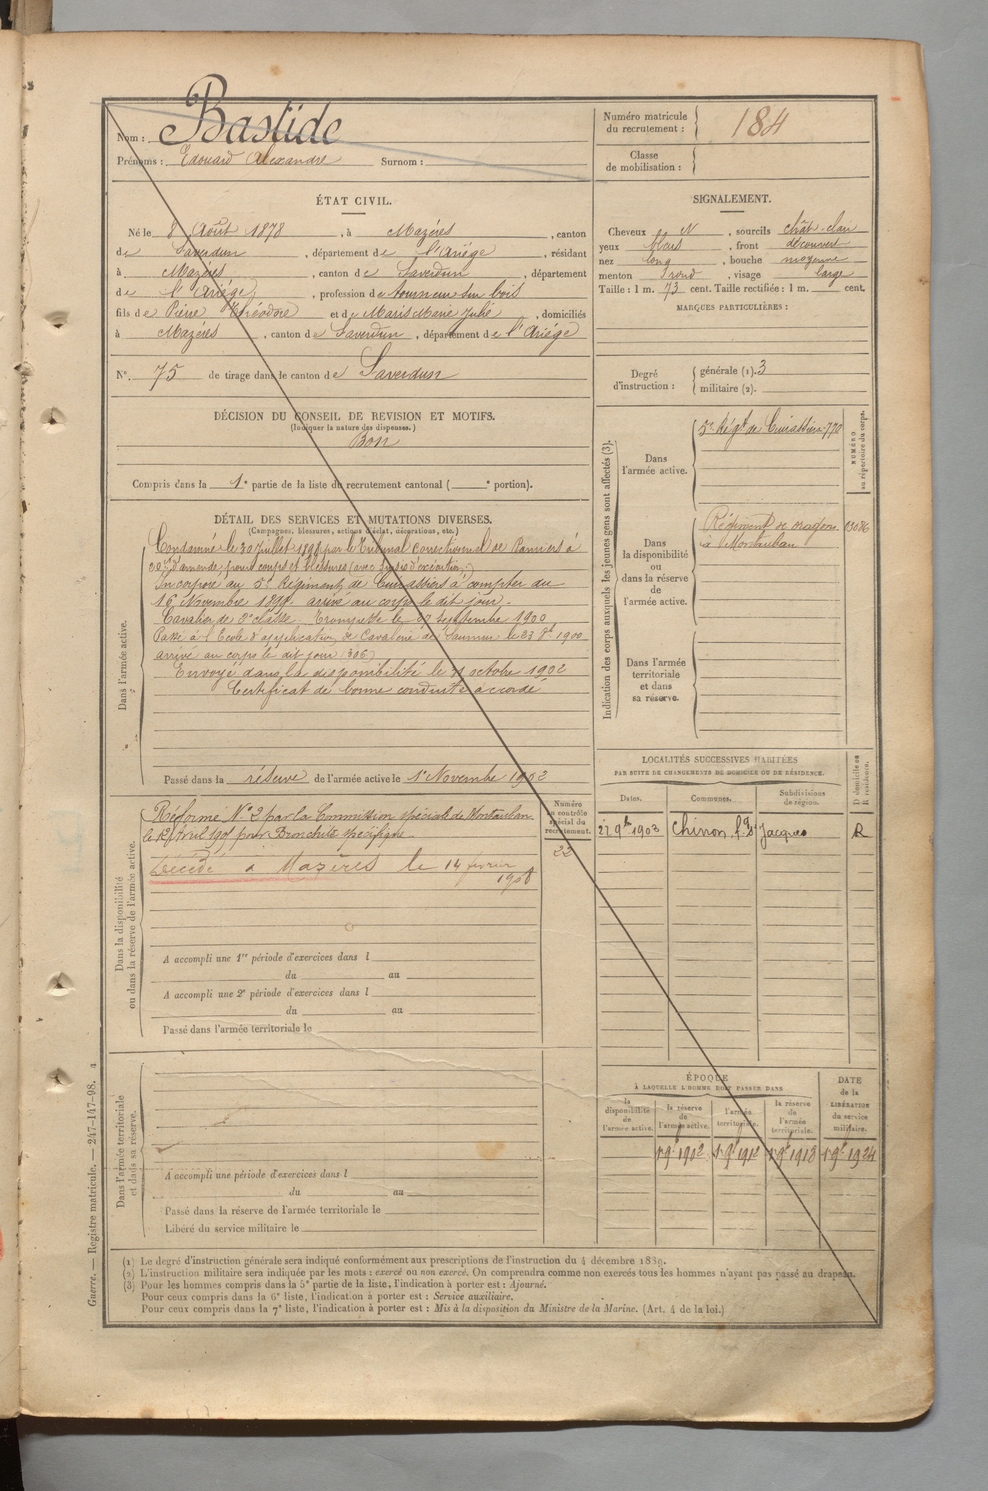 Nom : Bastide
Prénoms : Edouard Alexandre Surnom :
Numéro matricule du recrutement : 184
Classe de mobilisation :
ÉTAT CIVIL.
Né le 8 Août 1878, à Mazères, canton
de Saverdun, département de l'Ariége, résidant
à Mazères, canton de Saverdun, département
de l'Ariége, profession de tourneur sur bois
fils de Pierre Théodore et de Maris Marie Julie, domiciliés
à Mazères, canton de Saverdun, département de l'Ariége
N° 75 de tirage dans le canton de Saverdun
SIGNALEMENT.
Cheveux N, sourcils chât-clair
yeux bleus, front découvert
nez long, bouche moyenne
menton rond, visage large
Taille : 1 m. 73 cent. Taille rectifiée : 1 m. cent.
MARQUES PARTICULIÈRES :
Degré d'instruction : générale (1). 3
militaire (2).
DÉCISION DU CONSEIL DE REVISION ET MOTIFS.
(Indiquer la nature des dispenses.)
Bon
Compris dans la 1e partie de la liste du recrutement cantonal ( e portion).
DÉTAIL DES SERVICES ET MUTATIONS DIVERSES.
(Campagnes, blessures, actions d'éclat, décorations, etc.)
Dans l'armée active.
Condamné le 30 Juillet 1898 par le Tribunal Correctionnel de Pamiers à
d'amende, pour coups et blessures (avec sursis d'exécution.)
Incorporé au 5e Régiment de Cuirassiers à compter du
16 Novembre 1899. arrivé au corps le dit jour.
Cavalier de 2e classe. Trompette le 27 Septembre 1900
Passé à l'Ecole d'application de Cavalerie de Saumur le 23 1900
arrivé au corps le dit jour
Envoyé dans la disponibilité le octobre 1902
Certificat de bonne conduite accordé
Passé dans la réserve de l'armée active le 1er Novembre 1902
Indication des corps auxquels les jeunes gens sont affectés (3).
Dans l'armée active.
5e Régt de Cuirassiers 770
Dans la disponibilité ou dans la réserve de l'armée active.
Régiment de dragons
à Montauban
Dans l'armée territoriale et dans sa réserve.
NUMÉRO au répertoire du corps.
LOCALITÉS SUCCESSIVES HABITÉES
PAR SUITE DE CHANGEMENTS DE DOMICILE OU DE RÉSIDENCE.
D domicile ou R résidence.
Dates. Communes. Subdivisions de région.
27 9bre 1903 Chinon, St Jacques R
Dans la disponibilité ou dans la réserve de l'armée active.
Numéro au contrôle spécial du recrutement.
22
Réformé N° 2 par la Commission spéciale de Montauban
le 12 Avril 1907 pour Bronchite spécifique
Décédé à Mazères le 14 février
1908
A accompli une 1re période d'exercices dans l
du au
A accompli une 2e période d'exercices dans l
du au
Passé dans l'armée territoriale le
Dans l'armée territoriale et dans sa réserve.
A accompli une période d'exercices dans l
du au
Passé dans la réserve de l'armée territoriale le
Libéré du service militaire le
ÉPOQUE
À LAQUELLE L'HOMME DOIT PASSER DANS
la disponibilité de l'armée active. la réserve de l'armée active. l'armée territoriale. la réserve de l'armée territoriale. DATE de la LIBÉRATION du service militaire.
1er 9bre 1902 1er 9bre 1912 1er 9bre 1918 1er 9bre 1924
(1) Le degré d'instruction générale sera indiqué conformément aux prescriptions de l'instruction du 4 décembre 1889.
(2) L'instruction militaire sera indiquée par les mots : exercé ou non exercé. On comprendra comme non exercés tous les hommes n'ayant pas passé au drapeau.
(3) Pour les hommes compris dans la 5e partie de la liste, l'indication à porter est : Ajourné.
Pour ceux compris dans la 6e liste, l'indication à porter est : Service auxiliaire.
Pour ceux compris dans la 7e liste, l'indication à porter est : Mis à la disposition du Ministre de la Marine. (Art. 4 de la loi.)
Guerre. — Registre matricule. — 247-147-98. a